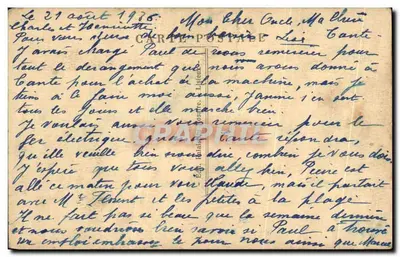 Le 21 août 1916.
Mon Cher Oncle, Ma Chère
Tante
J'avais chargé Paul de vous remercier pour
tout le derangement que nous avons donné à
Tante pour l'achat de la machine, mais je
tiens à le faire moi aussi, Jeanne s'en sert
tous les jours et elle marche bien.
Je voulais aussi vous remercier pour le
fer électrique quand Tante répondra,
qu'elle veuille bien nous dire combien je vous dois
J'espère que tous vous allez bien, Pierre est
allé ce matin pour voir Claude, mais il partait
avec Mr Florent et les petites à la plage
Il ne fait pas si beau que la semaine dernière
et nous voudrions bien savoir si Paul a trouvé
un emploi embrassez le pour nous ainsi que Marcel
Charles et Jeannette
Pour vous de bons baisers